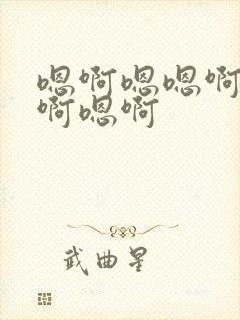 嗯啊嗯嗯啊
啊嗯啊
武曲星